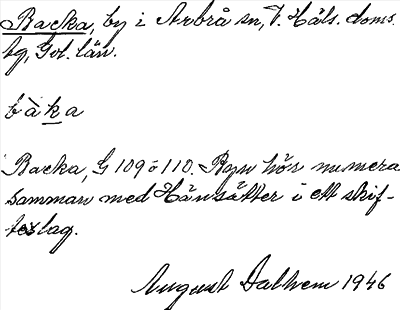 Backa, by i Arbrå sn, V. Häls. doms.
sg, Gvl. län.
bàka
Backa, G 109 o 110. Byn hör numera
samman med Hänsätter i ett skif-
teslag.
August Dalhem 1946